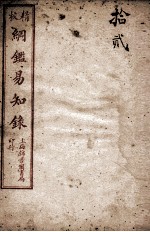 拾貳
精校
綱鑑易知錄
上海錦章圖書局
印行